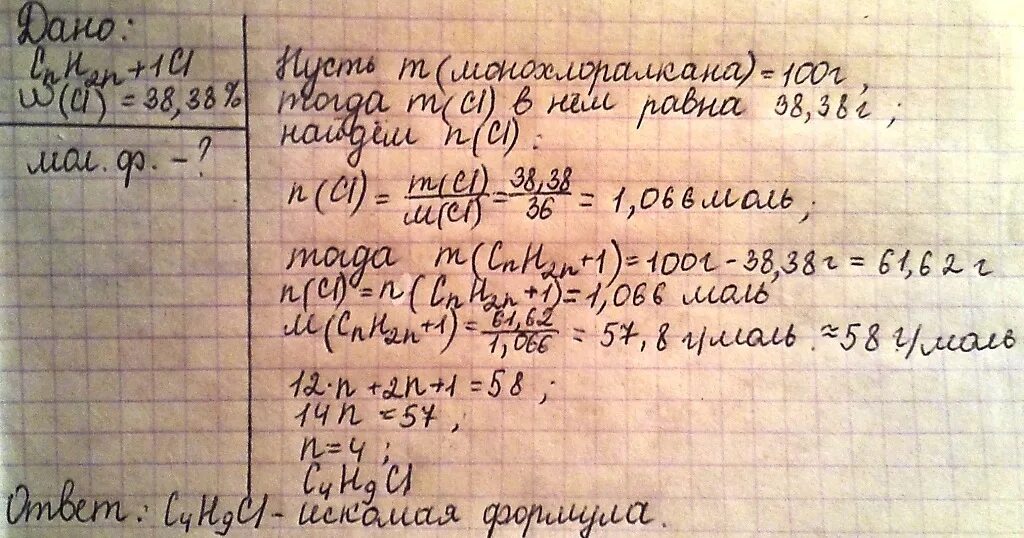 Дано:
CnH2n+1Cl
ω(Cl) = 38,38%
мол. ф. - ?
Пусть m(монохлоралкана) = 100г,
тогда m(Cl) в нём равна 38,38г ;
найдём n(Cl) :
n(Cl) = m(Cl)/M(Cl) = 38,38/36 = 1,066 моль ;
тогда m(CnH2n+1) = 100г - 38,38г = 61,62 г
n(Cl) = n(CnH2n+1) = 1,066 моль
M(CnH2n+1) = 61,62/1,066 = 57,8 г/моль ≈ 58 г/моль
12·n + 2n+1 = 58 ;
14n = 57 ;
n = 4 ;
C4H9Cl
Ответ: C4H9Cl - искомая формула.